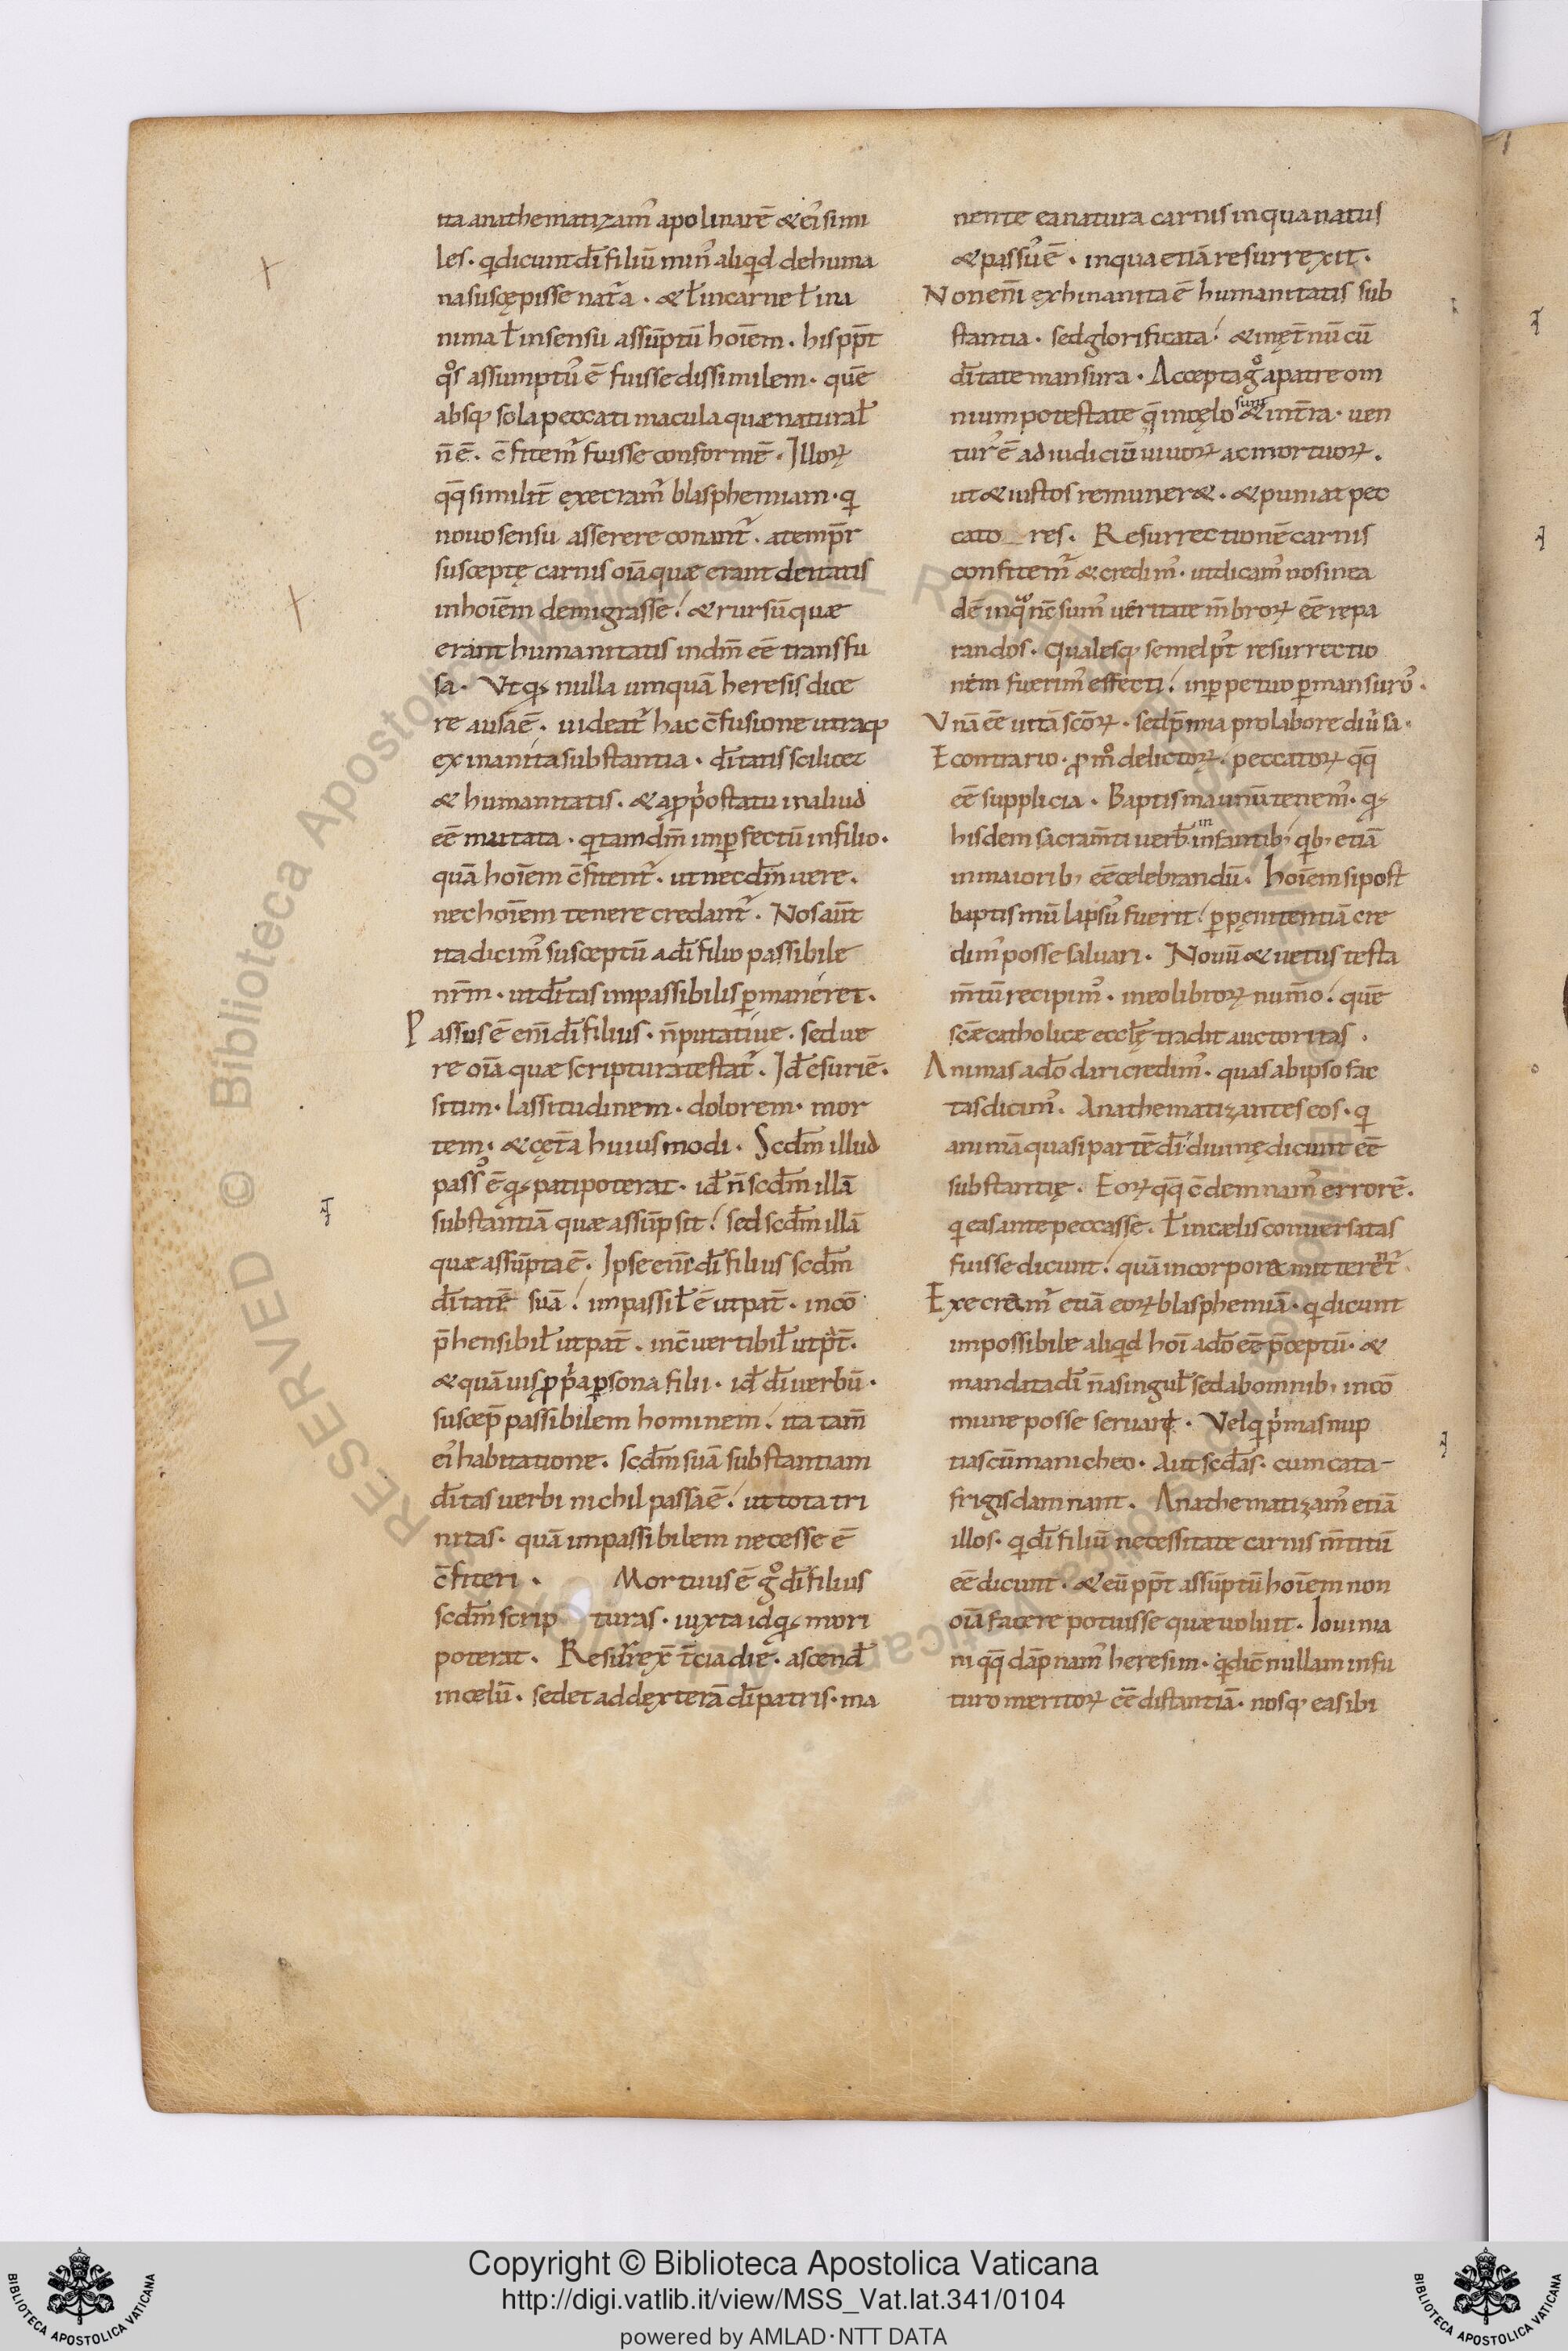 ita anathematizam᷒ apolinarē & ei᷒ simi
les · qi dicunt dī filiū min᷒ aliqid de huma
na suscępisse nat᷑a · & ł in carne ł in a
nima ł in sensu assūptū hoīem · his pp̄t
qos assumptu᷒ ē fuisse dissimilem · quē
absq; sola peccati macula quæ naturał
n̄ ē · c̄fitem᷑ fuisse conformē · Illoꝝ
qq̄ similit̄ execram᷑ blasphemiam · qi
nouo sensu asserere conant᷑ · a temp̄r
susceptę carnis oīa quæ erant deitatis
in hoīem demigrasse! & rursū quæ
erant humanitatis in dm̄ eē transfu
sa · Vt qꝫ nulla umquā heresis dice
re ausa ē · uideat᷑ hac c̄fusione utraq;
exinanita substantia · dītatis scilicet
& humanitatis · & a ꝓpio statu in aliud
eē mutata · qi tam dm̄ imꝑfectū in filio ·
quā hoīem c̄fitent᷑ · ut nec dm̄ uere ·
nec hoīem tenere credant᷑ · Nos aūt
ita dicim᷒ susceptū a dī filio passibile
nr̄m · ut dītas impassibilis ꝑmaneret ·
Passus ē enī dī filius · n̄ putatiue · sed ue
re oīa quæ scriptura testat᷑ · Id̄ esuriē ·
sitim · lassitudinem · dolorem · mor
tem · & cęt̄a huiusmodi · Scd̄m illud
pass᷒ ē qꝫ pati poterat · id̄ n̄ scd̄m illā
substantiā quæ assūpsit! sed scd̄m illā
quæ assūpta ē · Ipse enī dī filius scd̄m
dītatē suā! impassił ē ut pat̄ · incō
p̄hensibił ut pat̄ · inc̄uertibił ut pat̄ ·
& quāuis ꝓpia ꝑsona filii · id̄ dī uerbū ·
suscep̄ passibilem hominem! ita tam̄
ei᷒ habitatione · scd̄m suā substantiam
dītas uerbi nichil passa ē! ut tota tri
nitas · quā impassibilem necesse ē
c̄fiteri · Mortuus ē go dī filius
scd̄m scrip turas · iuxta id qꝫ mori
poterat · Resurrex̄ t̄cia die · ascend̄
in celū · sedet ad dęxterā dī patris · ma
nente ea natura carnis in qua natus
& passu᷒ ē · in qua etiā resurrexit ·
Non enī ęxhinanita ē humanitatis sub
stantia · sed glorificata! & in ęt̄nū cū
dītate mansura · Accepta go a patre om
nium potestate q̄ in cęlo sunt & in t̄ra · uen
tur᷒ ē ad iudiciū uiuoꝝ ac mortuoꝝ ·
ut & iustos remuner& · & puniat pec
cato res · Resurrectionē carnis
confitem᷑ & credim᷒ · ut dicam᷒ nos in ea
dē in qua nc̄ sum᷒ ueritate m̄broꝝ eē repa
randos · qualesq; semel pt᷒ resurrectio
nem fuerim᷒ effecti! in ꝑpetuo ꝑmansuro᷒ ·
Vnā eē uitā sc̄oꝝ · sed p̄mia pro labore diu᷑sa ·
E contrario · ꝓ mo delictoꝝ! peccatoꝝ qq̄
eē supplicia · Baptisma unū tenem᷒ · qꝫ
hisdem sacram̄ti uerb̄ in infantib; qib; etiā
in maiorib; eē celebrandū · Hoīem si post
baptismū lapsu᷒ fuerit! ꝑ pęnitentiā cre
dim᷒ posse saluari · Nouū & uetus testa
m̄tū recipim᷒ · in eo libroꝝ num̄o! quē
sc̄æ catholice eccłę tradit auctoritas ·
Animas a dō dari credim᷒ · quas ab ipso fac
tas dicim᷒ · Anathematizantes eos · qi
animā quasi partē dī diuinę dicunt eē
substantię · Eoꝝ qq̄ c̄demnam᷒ errorē ·
qi eas ante peccasse · ł in cælis conuersatas
fuisse dicunt! quā in corpora mitterent᷑ ·
Execram᷑ etiā eoꝝ blasphemiā · qi dicunt
impossibile aliqid hoī a dō eē p̄ceptū · &
mandata dī n̄ a singuł sed ab omnib; in cō
mune posse seruari · Vel qi pimas nup
tias cū manicheo · Aut scd̄as · cum cata-
frigis damnant · Anathematizam᷒ etiā
illos · qi dī filiū necessitate carnis m̄titū
eē dicunt · & eū pp̄t assūptū hoīem non
oīa facere potuisse quæ uoluit · Iouinia
ni qq̄ dāpnam᷒ heresim · qi dic̄ nullam in fu
turo meritoꝝ eē distantiā · nosq; ea sibi
RESERVED © Biblioteca Apostolica Vaticana ALL RIGHTS
Copyright © Biblioteca Apostolica Vaticana
http://digi.vatlib.it/view/MSS_Vat.lat.341/0104
powered by AMLAD·NTT DATA
BIBLIOTECA APOSTOLICA VATICANA
BIBLIOTECA APOSTOLICA VATICANA